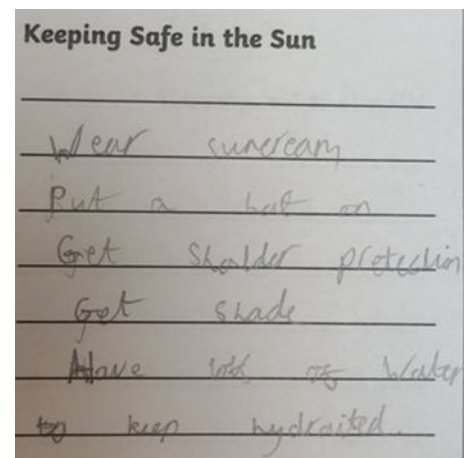 Keeping Safe in the Sun
Wear suncream
Put a hat on
Get Sholder protection
Get shade
Have lots of Water
to keep hydraited.